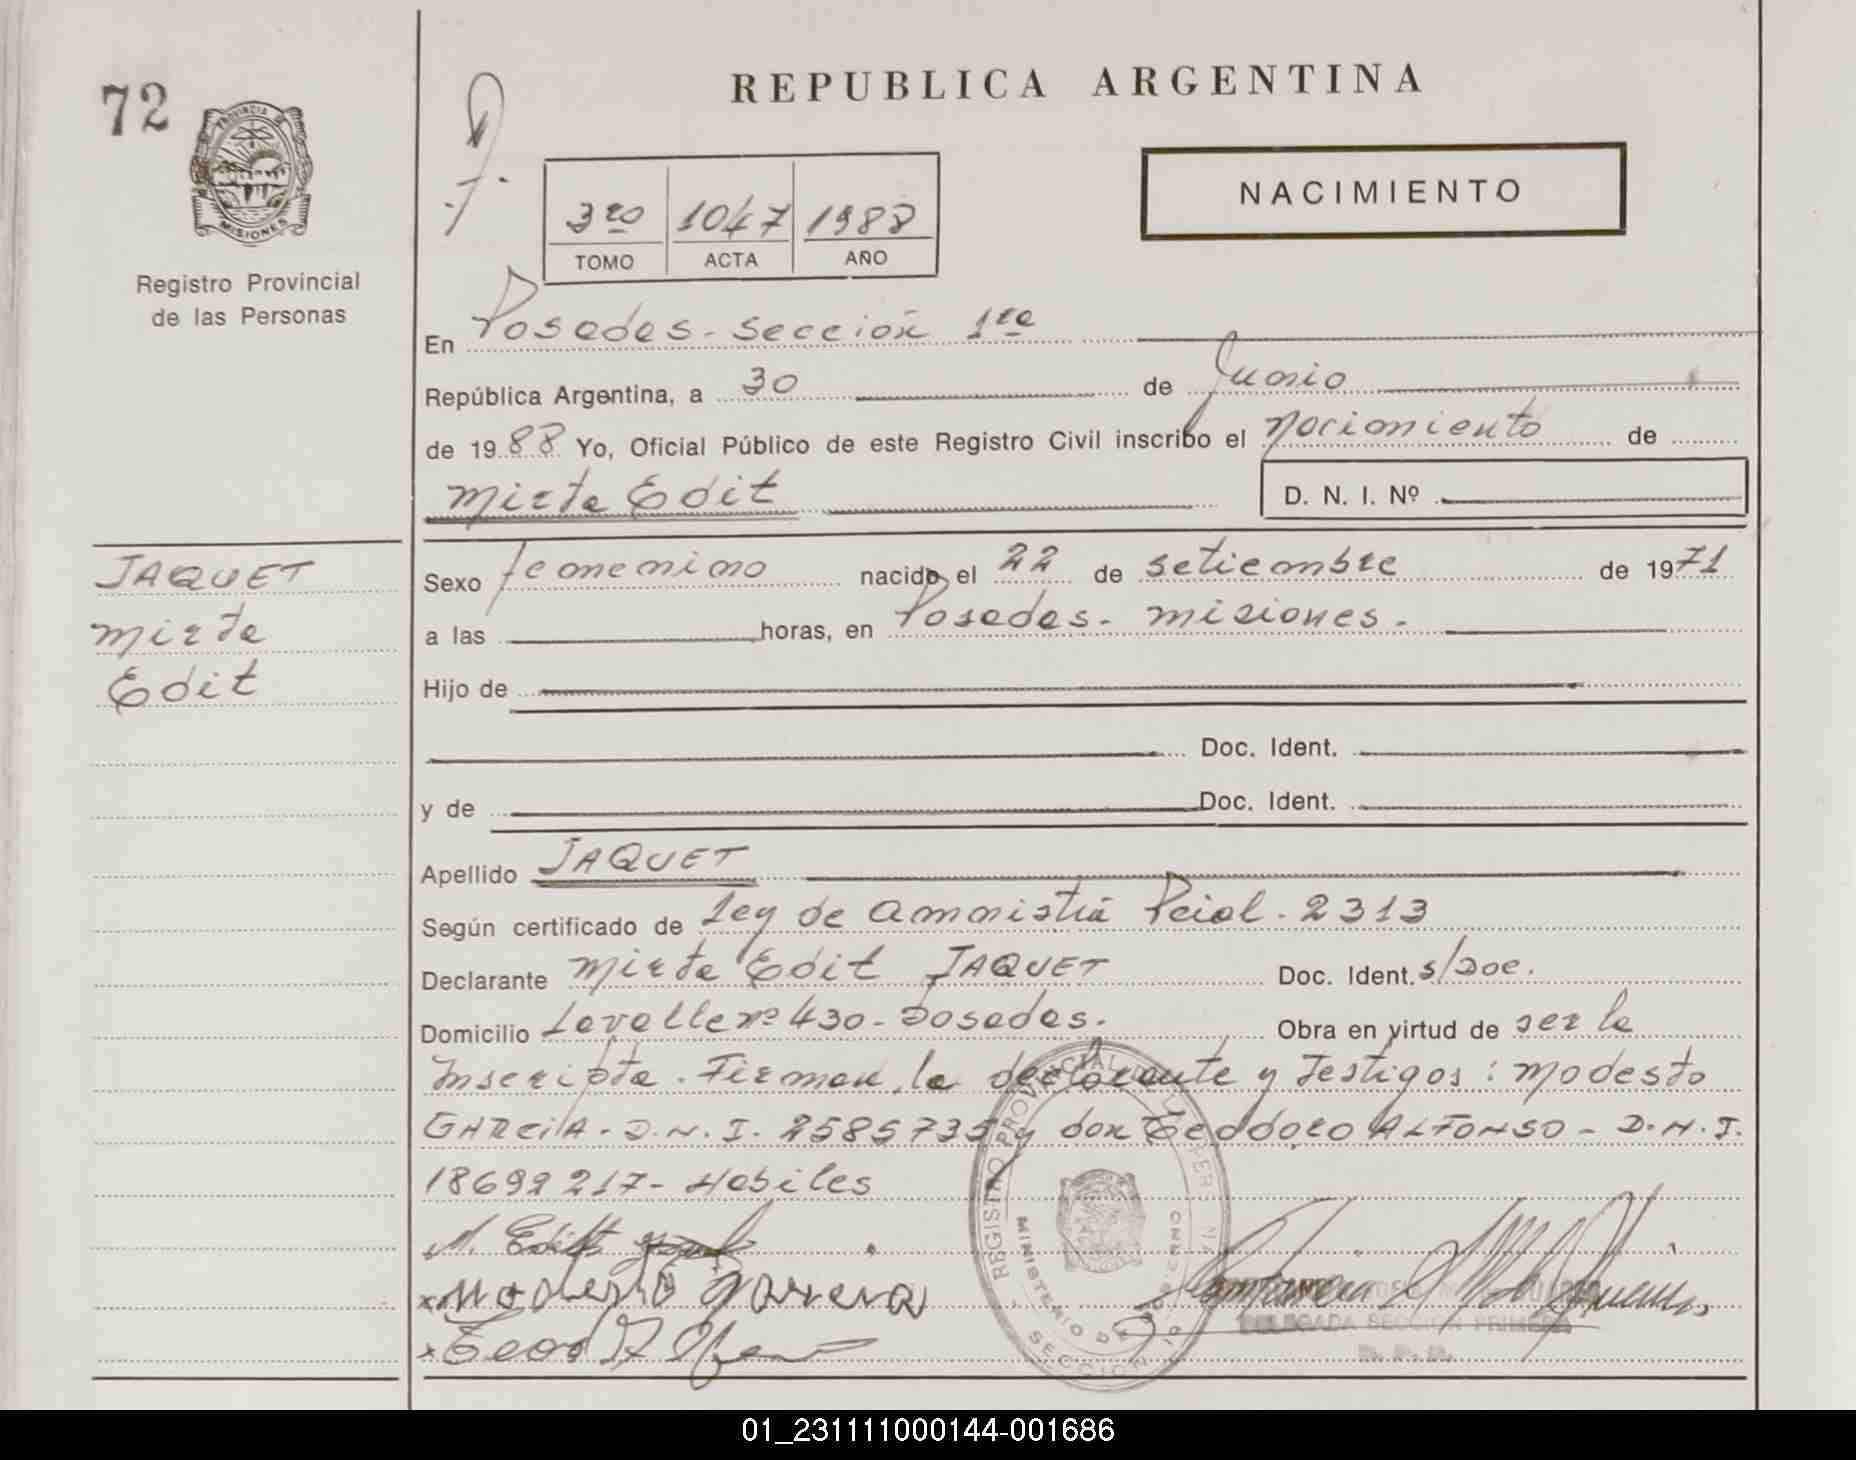 72
REPUBLICA ARGENTINA
PROVINCIA DE
MISIONES
Registro Provincial
de las Personas
NACIMIENTO
3ro 1047 1988
TOMO ACTA AÑO
En Posadas - Sección 1ra
República Argentina, a 30 de Junio
de 1988 Yo, Oficial Público de este Registro Civil inscribo el nacimiento de
Mirta Edit
D. N. I. Nº
JAQUET
Mirta
Edit
Sexo femenino nacido el 22 de setiembre de 1971
a las horas, en Posadas - Misiones.
Hijo de
Doc. Ident.
y de Doc. Ident.
Apellido JAQUET
Según certificado de Ley de Amnistía Pcial. 2313
Declarante Mirta Edit JAQUET Doc. Ident. s/Doc.
Domicilio Lavalle nº 430 - Posadas. Obra en virtud de ser la
Inscripta. Firman la declarante y Testigos: Modesto
GARCIA - D.N.I. 2585735 y don Teodoro ALFONSO - D.N.I.
18692217 - Habiles
M. Edith
x Modesto
x
REGISTRO PROVINCIAL DE LAS PER
MINISTERIO DE
SECCION
DELEGADA SECCION PRIMERA
R. P. P.
01_231111000144-001686